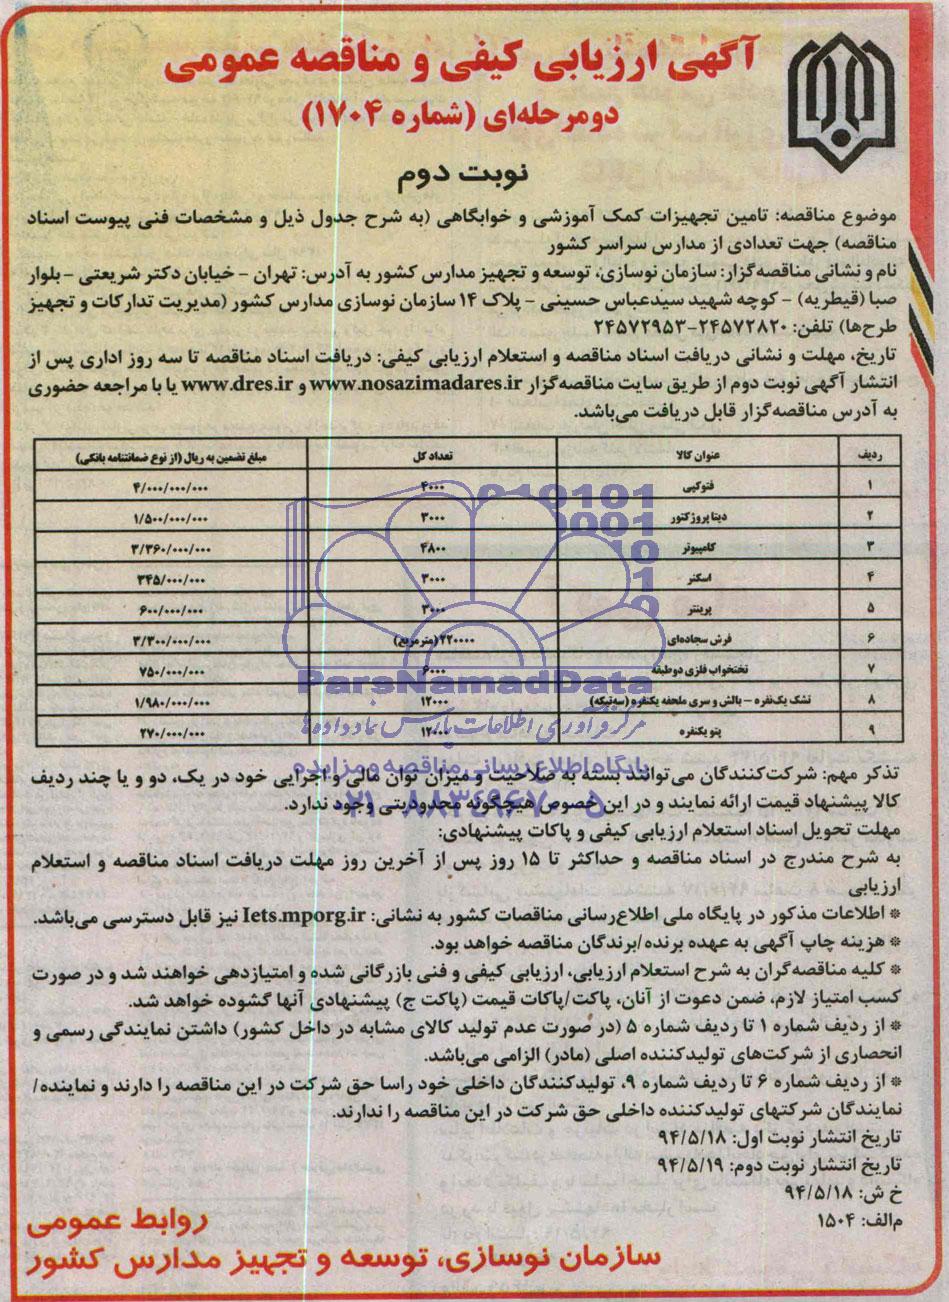 آگهی ارزیابی کیفی و مناقصه عمومی
دو مرحله‌ای (شماره ۱۷۰۴)
نوبت دوم
موضوع مناقصه: تامین تجهیزات کمک آموزشی و خوابگاهی (به شرح جدول ذیل و مشخصات فنی پیوست اسناد
مناقصه) جهت تعدادی از مدارس سراسر کشور
نام و نشانی مناقصه‌گزار: سازمان نوسازی، توسعه و تجهیز مدارس کشور به آدرس: تهران - خیابان دکتر شریعتی - بلوار
صبا (قیطریه) - کوچه شهید سیدعباس حسینی - پلاک ۱۴ سازمان نوسازی مدارس کشور (مدیریت تدارکات و تجهیز
طرح‌ها) تلفن: ۲۴۵۷۲۸۲۰-۲۴۵۷۲۹۵۳
تاریخ، مهلت و نشانی دریافت اسناد مناقصه و استعلام ارزیابی کیفی: دریافت اسناد مناقصه تا سه روز اداری پس از
انتشار آگهی نوبت دوم از طریق سایت مناقصه‌گزار www.nosazimadares.ir و www.dres.ir یا با مراجعه حضوری
به آدرس مناقصه‌گزار قابل دریافت می‌باشد.
ردیف عنوان کالا تعداد کل مبلغ تضمین به ریال (از نوع ضمانتنامه بانکی)
۱ فتوکپی ۴۰۰۰ ۴/۰۰۰/۰۰۰/۰۰۰
۲ دیتا پروژکتور ۳۰۰۰ ۱/۵۰۰/۰۰۰/۰۰۰
۳ کامپیوتر ۴۸۰۰ ۳/۳۶۰/۰۰۰/۰۰۰
۴ اسکنر ۳۰۰۰ ۳۴۵/۰۰۰/۰۰۰
۵ پرینتر ۳۰۰۰ ۶۰۰/۰۰۰/۰۰۰
۶ فرش سجاده‌ای ۲۲۰۰۰۰ (مترمربع) ۳/۳۰۰/۰۰۰/۰۰۰
۷ تختخواب فلزی دوطبقه ۶۰۰۰ ۷۵۰/۰۰۰/۰۰۰
۸ تشک یک‌نفره - بالش و سری ملحفه یکنفره (سه‌تیکه) ۱۲۰۰۰ ۱/۹۸۰/۰۰۰/۰۰۰
۹ پتو یکنفره ۱۲۰۰۰ ۲۷۰/۰۰۰/۰۰۰
010101
0001
ParsNamadData
مرکز فرآوری اطلاعات پارس نماد داده‌ها
پایگاه اطلاع رسانی مناقصه و مزایده
۰۲۱-۸۸۳۴۹۶۷۰-۵
تذکر مهم: شرکت‌کنندگان می‌توانند بسته به صلاحیت و میزان توان مالی و اجرایی خود در یک، دو و یا چند ردیف
کالا پیشنهاد قیمت ارائه نمایند و در این خصوص هیچگونه محدودیتی وجود ندارد.
مهلت تحویل اسناد استعلام ارزیابی کیفی و پاکات پیشنهادی:
به شرح مندرج در اسناد مناقصه و حداکثر تا ۱۵ روز پس از آخرین روز مهلت دریافت اسناد مناقصه و استعلام
ارزیابی
* اطلاعات مذکور در پایگاه ملی اطلاع‌رسانی مناقصات کشور به نشانی: Iets.mporg.ir نیز قابل دسترسی می‌باشد.
* هزینه چاپ آگهی به عهده برنده/برندگان مناقصه خواهد بود.
* کلیه مناقصه‌گران به شرح استعلام ارزیابی، ارزیابی کیفی و فنی بازرگانی شده و امتیازدهی خواهند شد و در صورت
کسب امتیاز لازم، ضمن دعوت از آنان، پاکت/پاکات قیمت (پاکت ج) پیشنهادی آنها گشوده خواهد شد.
* از ردیف شماره ۱ تا ردیف شماره ۵ (در صورت عدم تولید کالای مشابه در داخل کشور) داشتن نمایندگی رسمی و
انحصاری از شرکت‌های تولیدکننده اصلی (مادر) الزامی می‌باشد.
* از ردیف شماره ۶ تا ردیف شماره ۹، تولیدکنندگان داخلی خود راسا حق شرکت در این مناقصه را دارند و نماینده/
نمایندگان شرکتهای تولیدکننده داخلی حق شرکت در این مناقصه را ندارند.
تاریخ انتشار نوبت اول: ۹۴/۵/۱۸
تاریخ انتشار نوبت دوم: ۹۴/۵/۱۹
خ ش: ۹۴/۵/۱۸
م‌الف: ۱۵۰۴
روابط عمومی
سازمان نوسازی، توسعه و تجهیز مدارس کشور